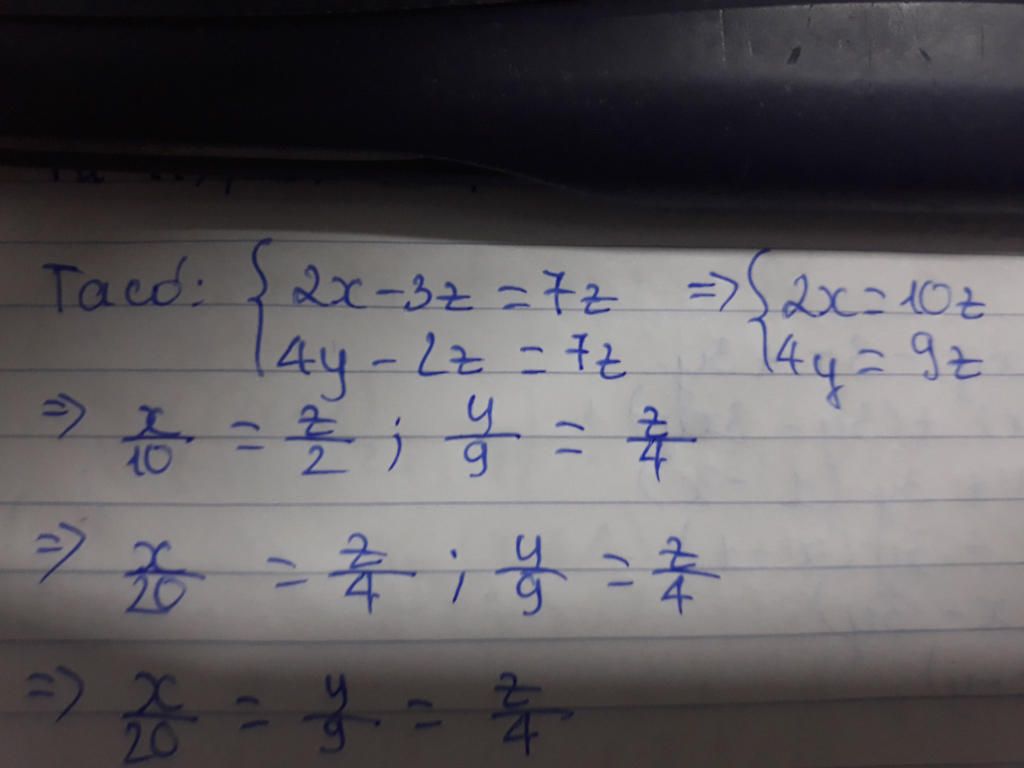 Ta có: { 2x - 3z = 7z => { 2x = 10z
4y - 2z = 7z 4y = 9z
=> x/10 = z/2 ; y/9 = z/4
=> x/20 = z/4 ; y/9 = z/4
=> x/20 = y/9 = z/4